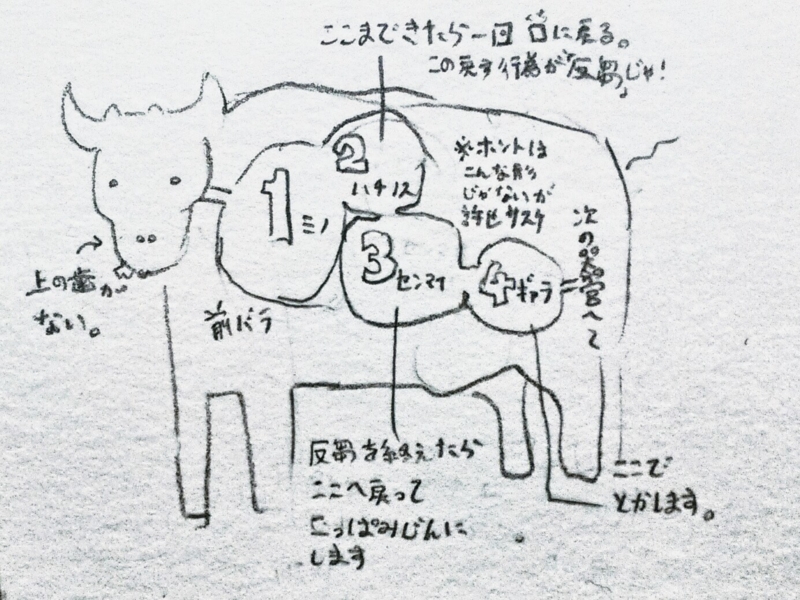 ここまできたら一回 口に戻る。
この戻す行為が「反芻」じゃ!
1 ミノ
2
ハチノス
3 センマイ
4 ギャラ
※ホントは
こんな形
じゃないが
許せサスケ
次の器官へて
上の歯が
ない。
前バラ
反芻を終えたら
ここへ戻って
こっぱみじんに
します
ここで
とかします。